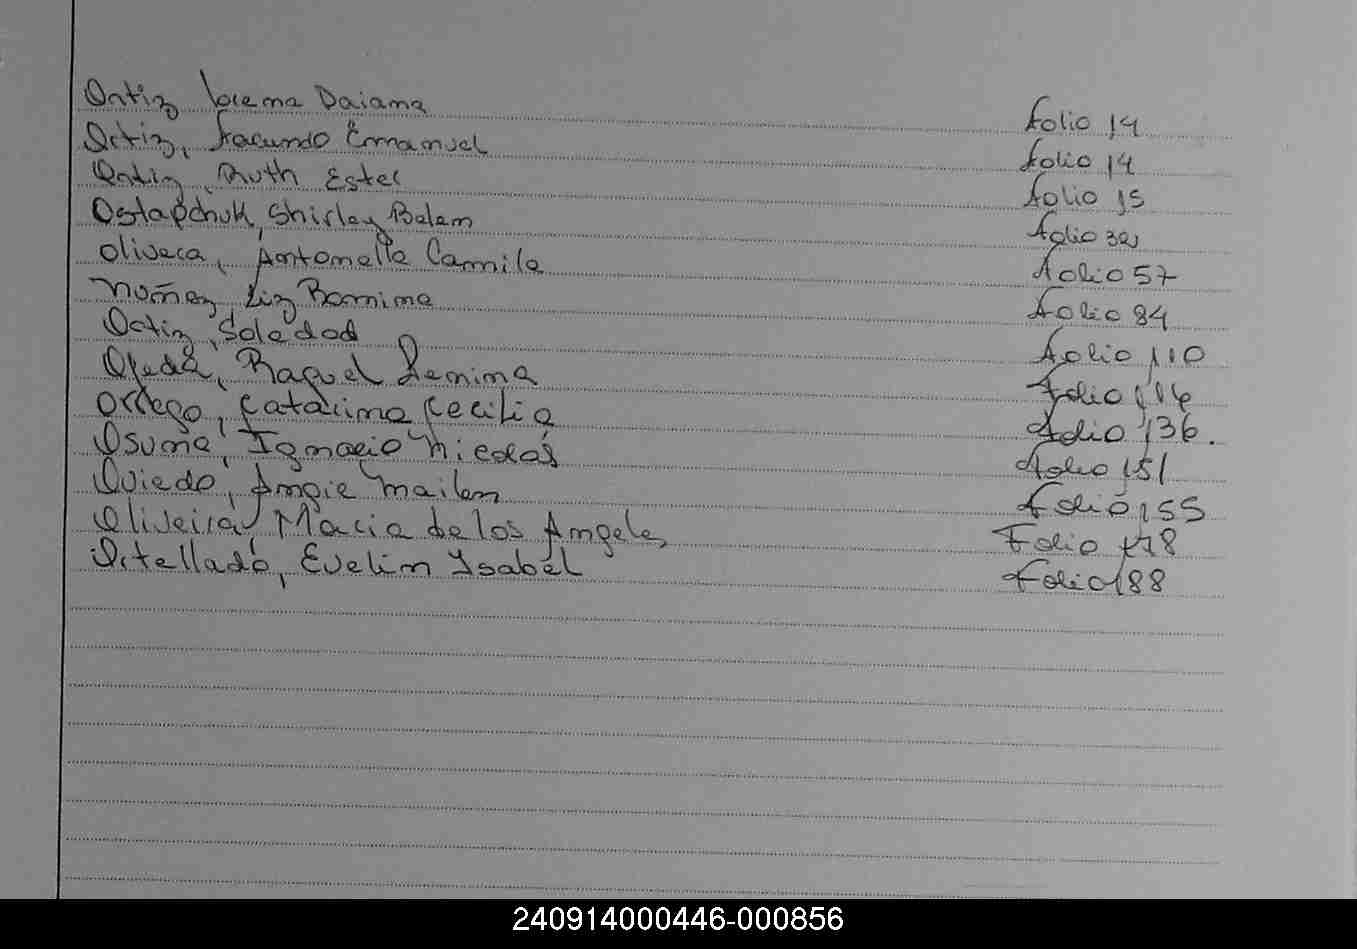 Ortiz Lorena Daiana Folio 14
Ortiz, Facundo Emmanuel Folio 14
Ortiz, Ruth Ester Folio 15
Ostapchuk, Shirley Belem Folio 32
Olivera, Antonella Camila Folio 57
Nuñez Liz Romina Folio 84
Ortiz, Soledad Folio 110
Ojeda, Raquel Jemima Folio 114
Orrego, Catalina Cecilia Folio 136.
Osuna, Ignacio Nicolás Folio 151
Oviedo, Angie Mailen Folio 155
Oliveira, Maria de los Angeles Folio 178
Ortellado, Evelin Ysabel Folio 188
240914000446-000856